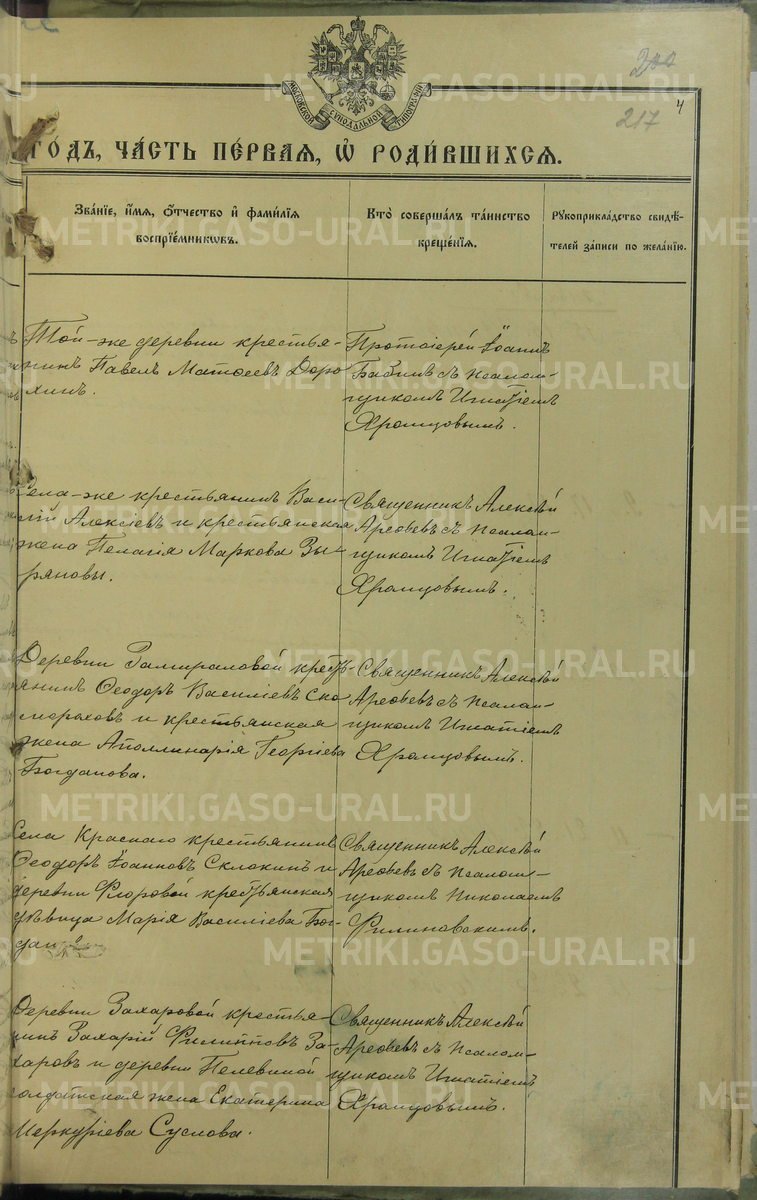 200
217
4
МОСКОВСКОЙ СУНОДАЛЬНОЙ ТИПОГРАФІИ
ГОДЪ, ЧАСТЬ ПЕРВАЯ, Ѡ РОДИВШИХСЯ.
Званіе, имя, отчество и фамилія
воспріемниковъ.
Кто совершалъ таинство
крещенія.
Рукоприкладство свидѣ-
телей записи по желанію.
Той-же деревни крестья-
нинъ Павелъ Матѳеевъ Доро
хинъ.
Протоіерей Іоаннъ
съ псалом-
щикомъ Игнатіемъ
Храмцовымъ.
Села-же крестьянинъ Васи-
лій Алексіевъ и крестьянская
жена Пелагія Маркова Зы-
ряновы.
Священникъ Алексѣй
Арефьевъ съ псалом-
щикомъ Игнатіемъ
Храмцовымъ.
Деревни крестья-
янинъ Ѳеодоръ Василіевъ Ско
мороховъ и крестьянская
жена Аполлинарія Георгіева
Богданова.
Священникъ Алексѣй
Арефьевъ съ псалом-
щикомъ Игнатіемъ
Храмцовымъ.
Села Краснаго крестьянинъ
Ѳеодоръ Іоанновъ Склокинъ и
деревни Фроровой крестьянская
дѣвица Марія Василіева Бог-
дан
Священникъ Алексѣй
Арефьевъ съ псалом-
щикомъ Николаемъ
Филиновскимъ.
Деревни Захаровой крестья-
нинъ Захарій Филипповъ За-
харовъ и деревни Пелевиной
солдатская жена Екатерина
Меркуріева Суслова.
Священникъ Алексѣй
Арефьевъ съ псалом-
щикомъ Игнатіемъ
Храмцовымъ.
METRIKI.GASO-URAL.RU
METRIKI.GASO-URAL.RU
METRIKI.GASO-URAL.RU
METRIKI.GASO-URAL.RU
METRIKI.GASO-URAL.RU
METRIKI.GASO-URAL.RU